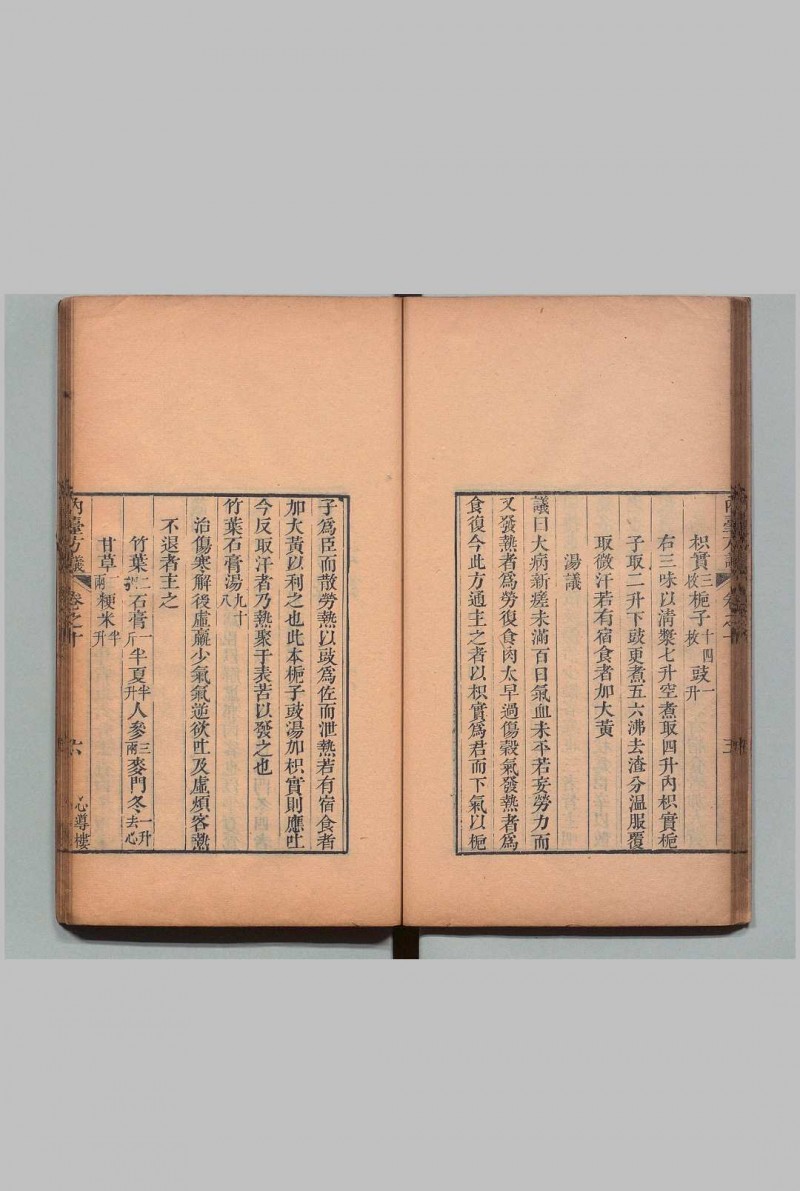 枳實三枚梔子十四枚豉一升
右三味以清漿七升空煮取四升內枳實梔
子取二升下豉更煮五六沸去渣分温服覆
取微汗若有宿食者加大黃
湯議
議曰大病新瘥未滿百日氣血未平若妄勞力而
又發熱者爲勞復食肉太早過傷穀氣發熱者爲
食復今此方通主之者以枳實爲君而下氣以梔
子爲臣而散勞熱以豉爲佐而泄熱若有宿食者
加大黃以利之也此本梔子豉湯加枳實則應吐
今反取汗者乃熱聚于表苦以發之也
竹葉石膏湯九十八
治傷寒解後虛羸少氣氣逆欲吐及虛煩客熱
不退者主之
竹葉二把石膏一斤半夏半升人參三兩麥門冬一升去心
甘草二兩粳米半升
內臺方議 卷之十 六 心導樓